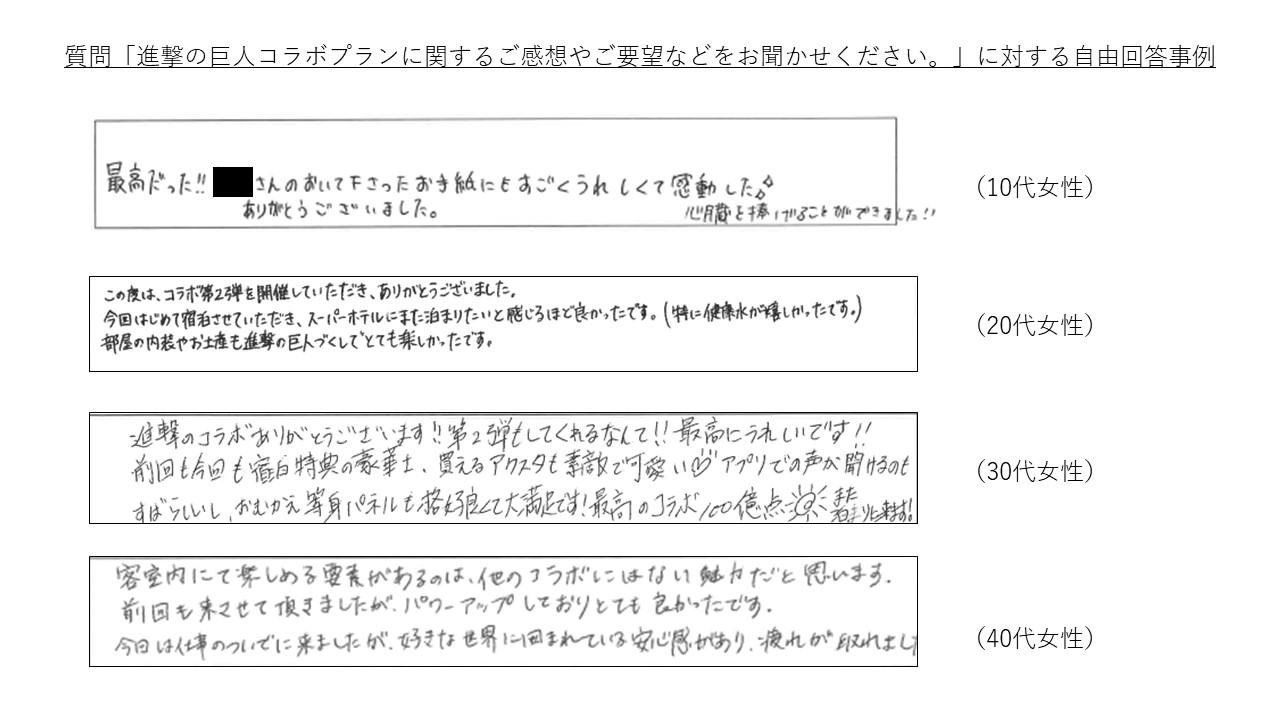 質問「進撃の巨人コラボプランに関するご感想やご要望などをお聞かせください。」に対する自由回答事例
最高だった!! さんのおいて下さったお手紙にもすごくうれしくて感動した
ありがとうございました。
心臓を捧げることができました!!
(10代女性)
この度は、コラボ第2弾を開催していただき、ありがとうございました。
今回はじめて宿泊させていただき、スーパーホテルにまた泊まりたいと感じるほど良かったです。(特に健康水が嬉しかったです。)
部屋の内装やお土産も進撃の巨人づくしでとても楽しかったです。
(20代女性)
進撃のコラボありがとうございます!!第2弾もしてくれるなんて!!最高にうれしいです!!
前回も今回も宿泊特典の豪華士、買えるアクスタも素敵で可愛い♡アプリでの声が聞けるのも
すばらしいし、おむかえ等身パネルも格好良くて大満足です!最高のコラボ100億点 また
泊まりに来ます!
(30代女性)
客室内にて楽しめる要素があるのは、他のコラボにはない魅力だと思います.
前回も来させて頂きましたが、パワーアップしておりとても良かったです.
今日は仕事のついでに来ましたが、好きな世界に囲まれている安心感があり、疲れが取れまし
(40代女性)